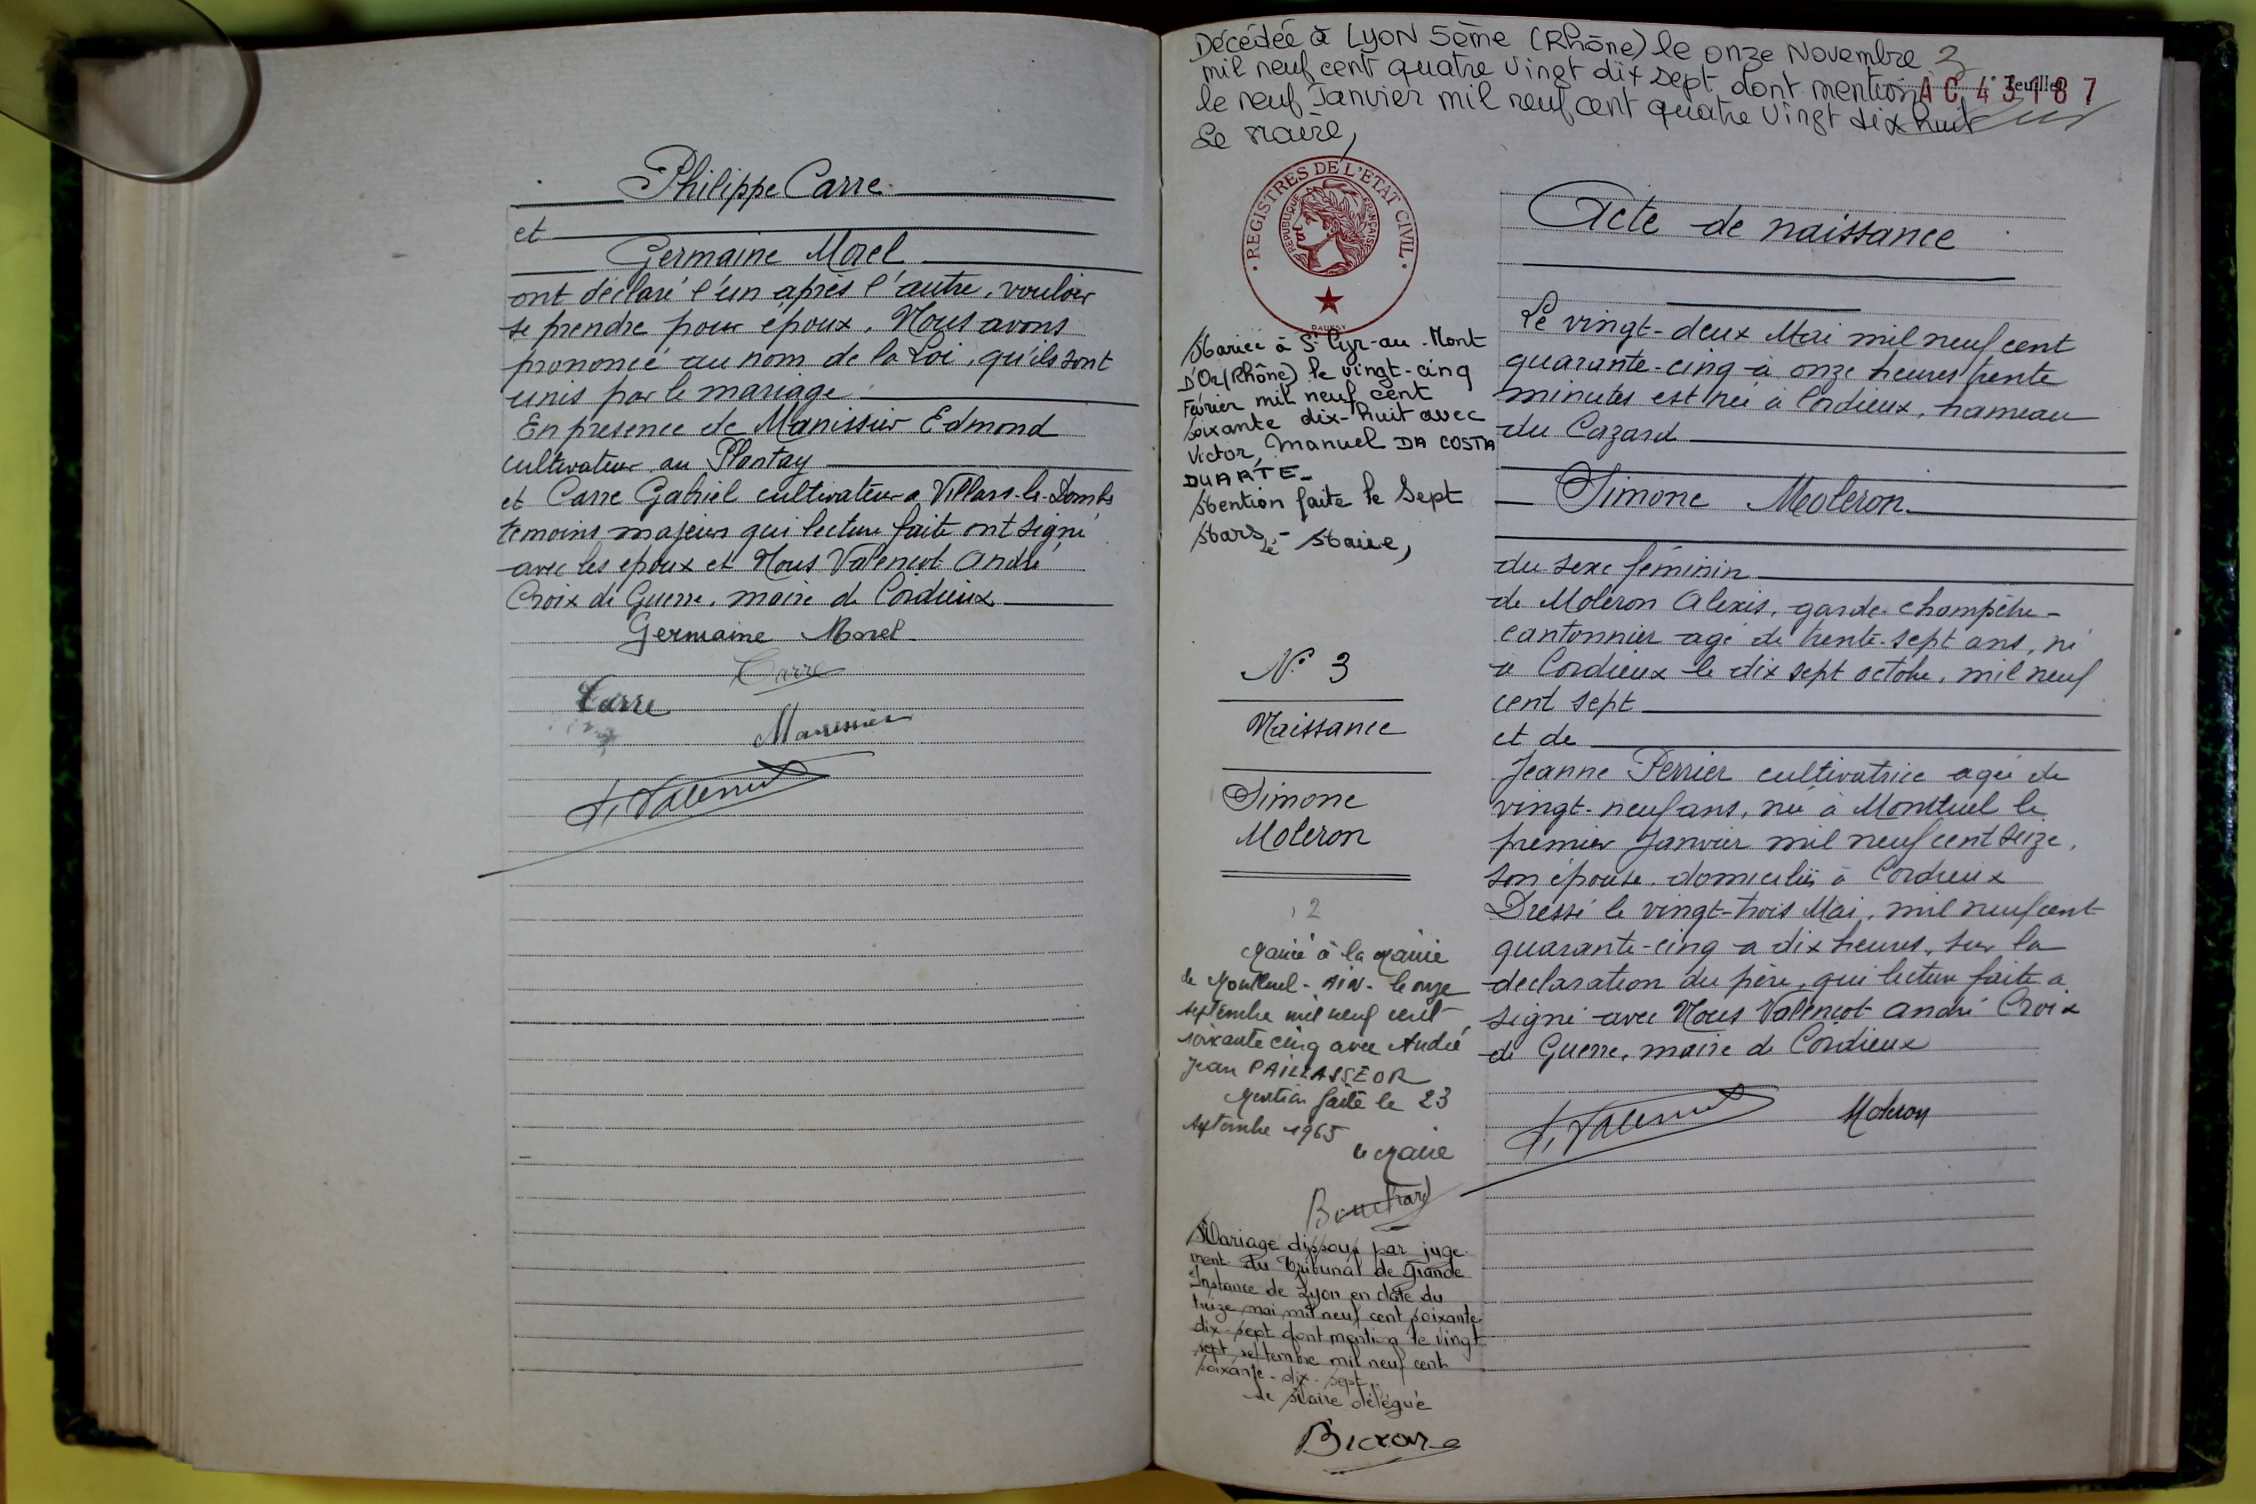 Philippe Carre
et
Germaine Morel
ont déclaré l'un après l'autre, vouloir
se prendre pour époux. Nous avons
prononcé au nom de la Loi, qu'ils sont
unis par le mariage
En présence de Manissier Edmond
cultivateur au Plantay
et Carre Gabriel cultivateur a Villars-les-Dombes
temoins majeurs qui lecture faite ont signé
avec les époux et Nous Valençot André
Croix de Guerre, maire de Cordieux
Germaine Morel
Carre
Carre
Manissier
Décédée à LYON 5ème (Rhône) le onze Novembre
mil neuf cent quatre vingt dix sept dont mention
le neuf Janvier mil neuf cent quatre vingt dix huit
Le Maire,
3
Feuillet
AC 43187
REGISTRES DE L'ETAT CIVIL
REPUBLIQUE FRANÇAISE
Mariée à St Cyr-au-Mont
D'Or (Rhône) le vingt-cinq
Février mil neuf cent
soixante dix-huit avec
Victor, Manuel DA COSTA
DUARTE-
Mention faite le Sept
Mars.-
Le Maire,
N° 3
Naissance
Simone
Moleron
2
Marié à la Mairie
de Montluel - AIN - le onze
septembre mil neuf cent
soixante cinq avec André
Jean PAILLASSEOR
Mention faite le 23
septembre 1965
le Maire
Mariage dissous par juge-
ment du Tribunal de Grande
Instance de Lyon en date du
treize mai mil neuf cent soixante-
dix-sept dont mention le vingt
sept septembre mil neuf cent
soixante-dix-sept.
Le Maire délégué
Acte de naissance
Le vingt-deux Mai mil neuf cent
quarante-cinq à onze heures trente
minutes est née à Cordieux, hameau
du Cazard
Simone Moleron
du sexe féminin
de Moleron Alexis, garde-champêtre-
cantonnier agé de trente-sept ans, né
à Cordieux le dix sept octobre, mil neuf
cent sept
et de
Jeanne Perrier cultivatrice agée de
vingt-neuf ans, née à Montluel le
premier Janvier mil neuf cent seize,
son épouse, domiciliés à Cordieux
Dressé le vingt-trois Mai, mil neuf cent
quarante-cinq a dix heures, sur la
déclaration du père, qui lecture faite a
signé avec Nous Valençot André Croix
de Guerre, maire de Cordieux
Moleron